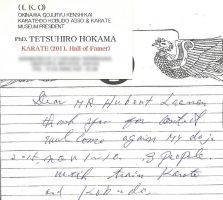 (I. K. O)
OKINAWA GOJURYU KENSHIKAI
KARATE-DO KOBUDO ASSO & KARATE
MUSEUM PRESIDENT
PhD. TETSUHIRO HOKAMA
KARATE (2011. Hall of Famer)
Dear MR Hubert Laenen
thank you for contact
welcome against my dojo
3 people.
train Karate
and Kobudo.